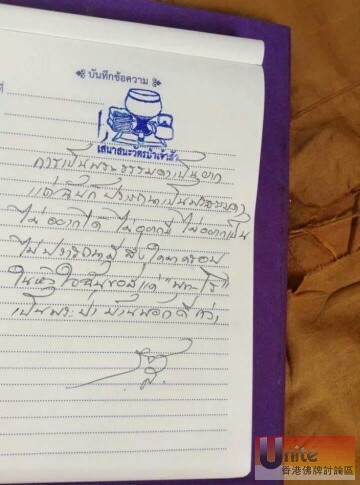 บันทึกข้อความ
ที่
เสนาสนะวัตรป่าเจ้าสัว
การเป็นพระธรรมดาเป็นยาก
แต่ฉันก็ปรารถนาเป็นพระธรรมดา
ไม่อยากได้ ไม่อยากมี ไม่อยากเป็น
ไม่ปรารถนามี สิ่งใดมาครอบ
ในหัวใจฉันขอมีแค่
เป็นพระป่า บ้านนอกดีกว่า
Unite
香港佛牌討論區